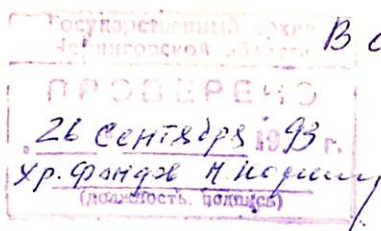 Государственный архив
Черниговской области
В
ПРОВЕРЕНО
26 сентября 1993 г.
хр. фондов Н.
(должность, подпись)